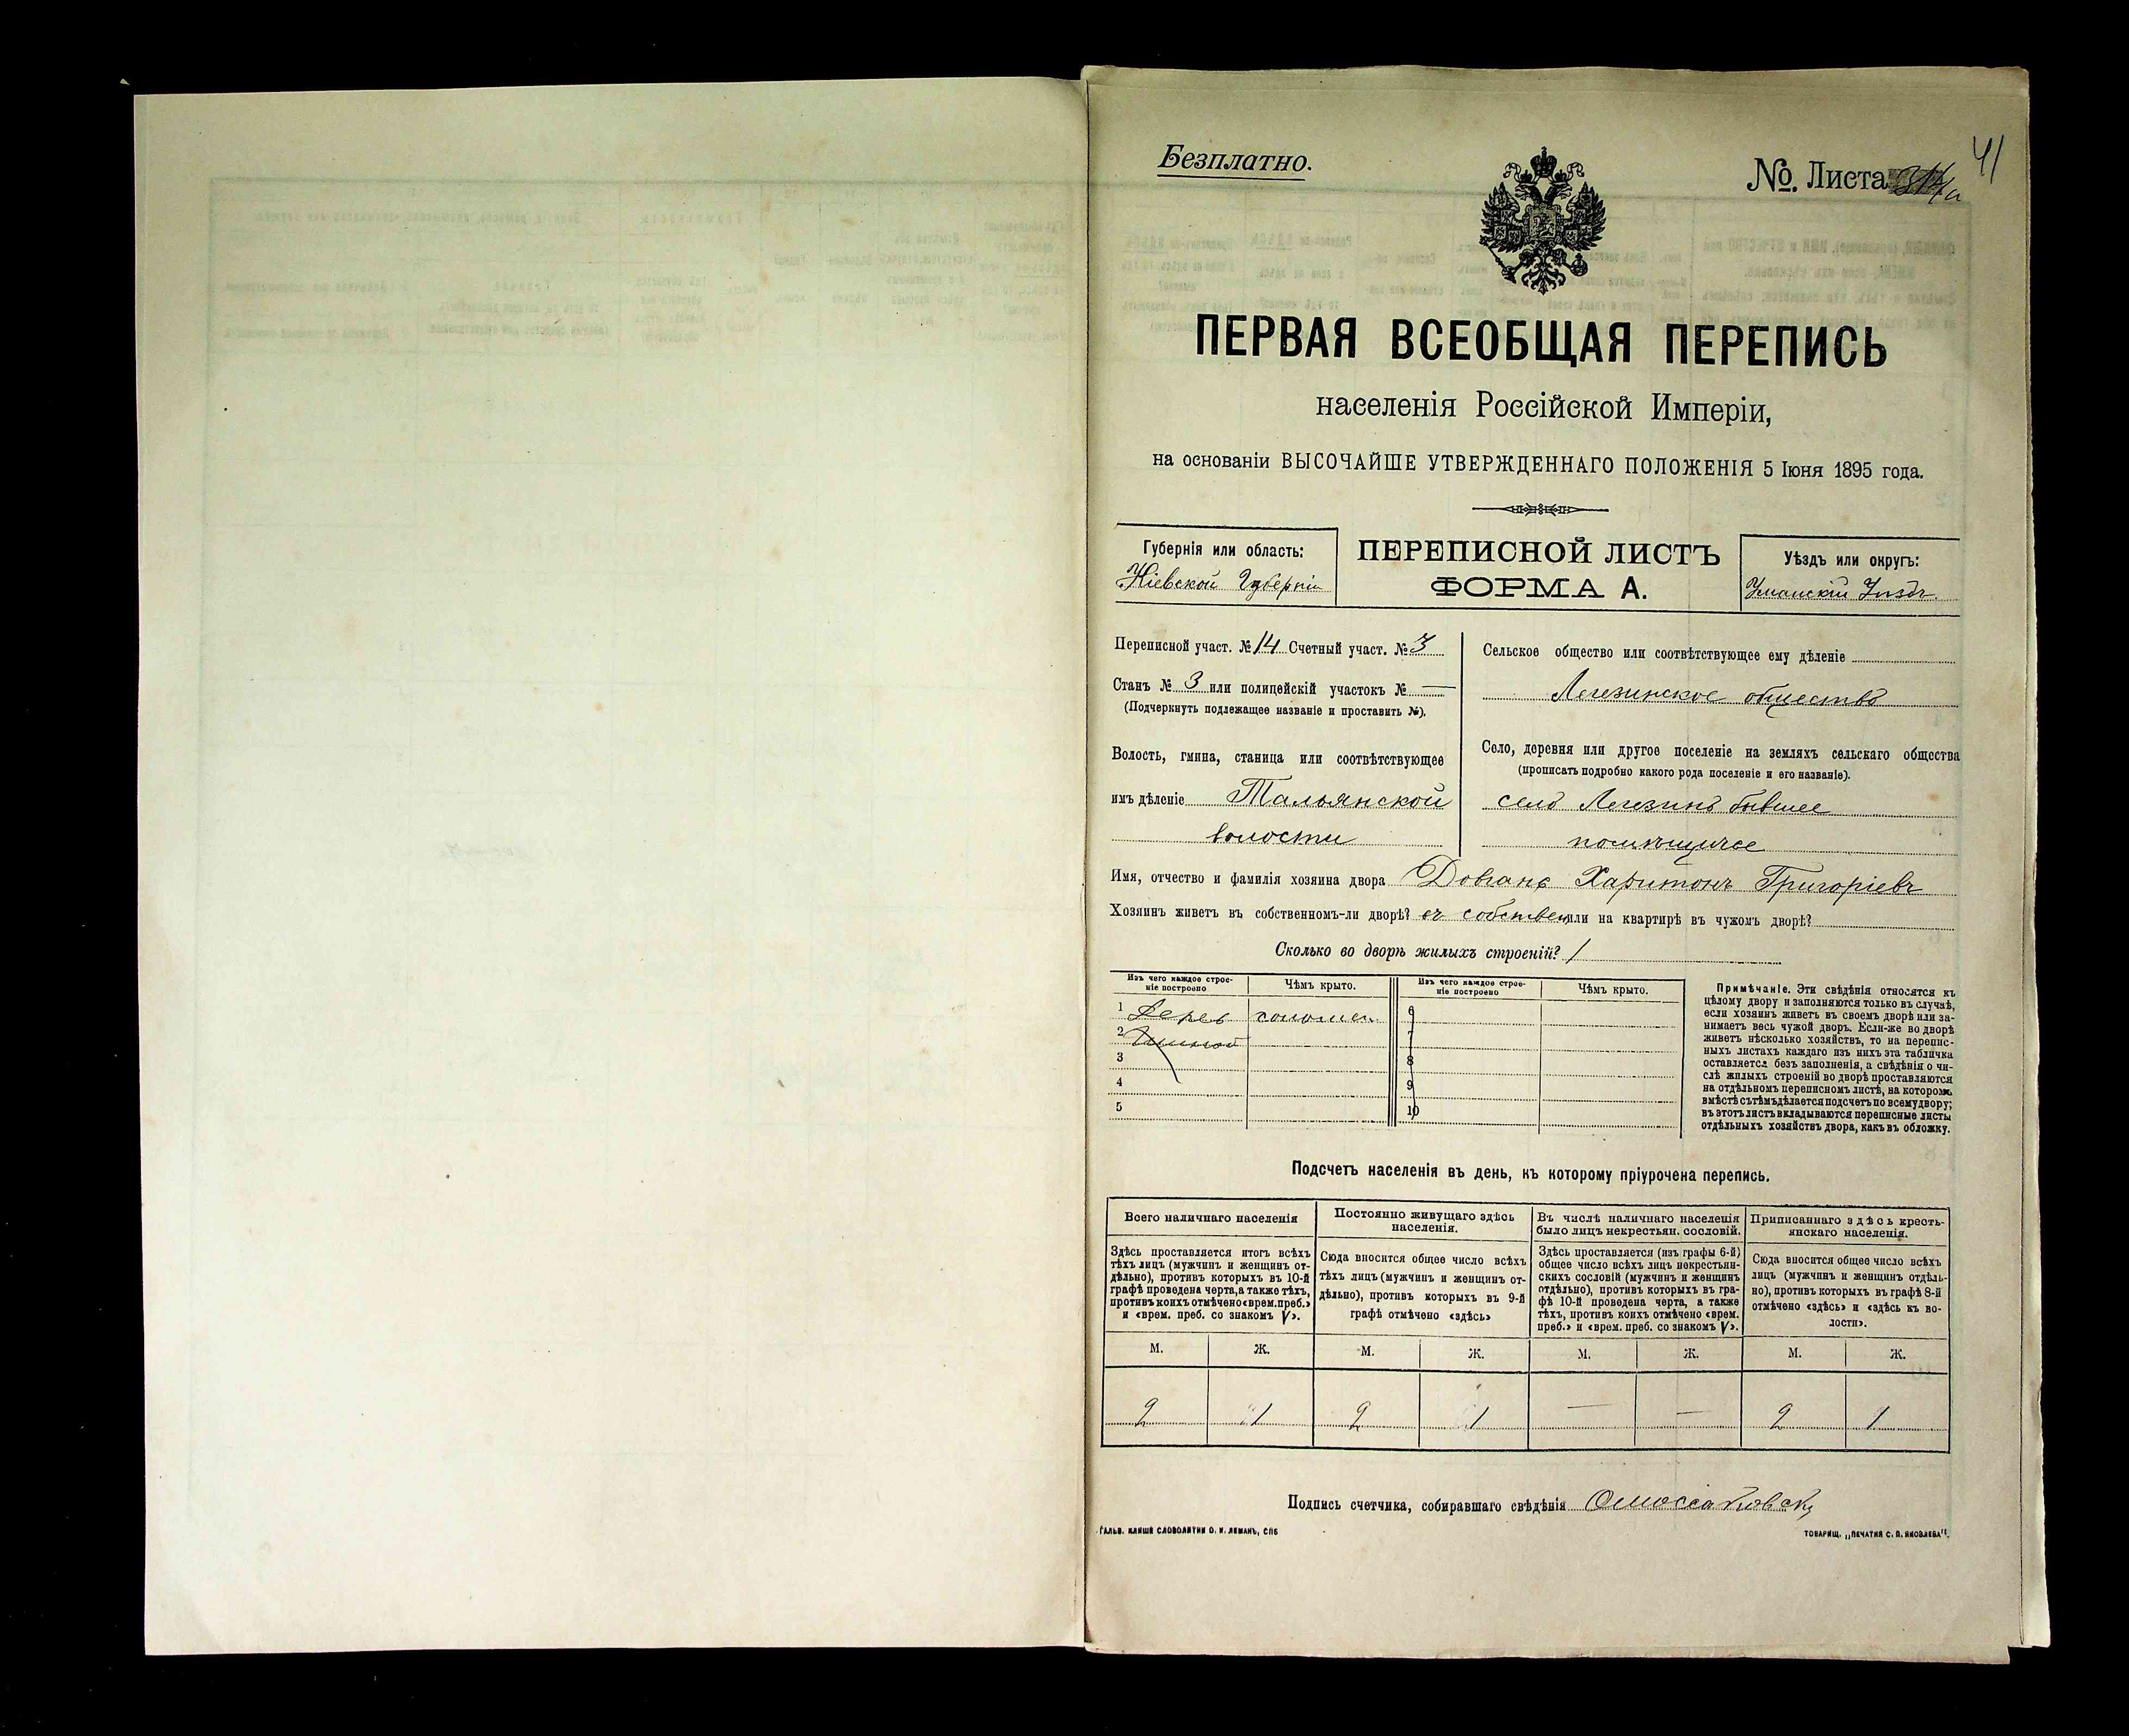 Безплатно.
№. Листа
41
ПЕРВАЯ ВСЕОБЩАЯ ПЕРЕПИСЬ
населенія Россійской Имперіи,
на основаніи ВЫСОЧАЙШЕ УТВЕРЖДЕННАГО ПОЛОЖЕНІЯ 5 Іюня 1895 года.
Губернія или область:
Кіевской Губерніи
ПЕРЕПИСНОЙ ЛИСТЪ
ФОРМА А.
Уѣздъ или округъ:
Уманскій Уѣздъ.
Переписной участ. № 14 Счетный участ. № 3
Станъ № 3 или полицейскій участокъ № —
(Подчеркнуть подлежащее названіе и проставить №).
Волость, гмина, станица или соотвѣтствующее
имъ дѣленіе Тальянской
волости
Сельское общество или соотвѣтствующее ему дѣленіе
Легезинское общество
Село, деревня или другое поселеніе на земляхъ сельскаго общества
(прописать подробно какого рода поселеніе и его названіе).
село Легезино бывшее
помѣщичье
Имя, отчество и фамилія хозяина двора Довгань Харитонъ Григоріевъ
Хозяинъ живетъ въ собственномъ-ли дворѣ? въ собствен или на квартирѣ въ чужомъ дворѣ?
Сколько во дворѣ жилыхъ строеній? 1
Изъ чего каждое строе-
ніе построено
Чѣмъ крыто.
Изъ чего каждое строе-
ніе построено
Чѣмъ крыто.
1 Дерев солomen
2
3
4
5
6
7
8
9
10
Примѣчаніе. Эти свѣдѣнія относятся къ
цѣлому двору и заполняются только въ случаѣ,
если хозяинъ живетъ въ своемъ дворѣ или за-
нимаетъ весь чужой дворъ. Если-же во дворѣ
живетъ нѣсколько хозяйствъ, то на перепис-
ныхъ листахъ каждаго изъ нихъ эта табличка
оставляется безъ заполненія, а свѣдѣнія о чи-
слѣ жилыхъ строеній во дворѣ проставляются
на отдѣльномъ переписномъ листѣ, на которомъ
вмѣстѣ съ тѣмъ дѣлается подсчетъ по всему двору;
въ этотъ листъ вкладываются переписные листы
отдѣльныхъ хозяйствъ двора, какъ въ обложку.
Подсчетъ населенія въ день, къ которому пріурочена перепись.
Всего наличнаго населенія
Здѣсь проставляется итогъ всѣхъ
тѣхъ лицъ (мужчинъ и женщинъ от-
дѣльно), противъ которыхъ въ 10-й
графѣ проведена черта, а также тѣхъ,
противъ коихъ отмѣчено «врем. преб.»
и «врем. преб. со знакомъ V».
Постоянно живущаго здѣсь
населенія.
Сюда вносится общее число всѣхъ
тѣхъ лицъ (мужчинъ и женщинъ от-
дѣльно), противъ которыхъ въ 9-й
графѣ отмѣчено «здѣсь»
Въ числѣ наличнаго населенія
было лицъ некрестьян. сословій.
Здѣсь проставляется (изъ графы 6-й)
общее число всѣхъ лицъ некрестьян-
скихъ сословій (мужчинъ и женщинъ
отдѣльно), противъ которыхъ въ гра-
фѣ 10-й проведена черта, а также
тѣхъ, противъ коихъ отмѣчено «врем.
преб.» и «врем. преб. со знакомъ V».
Приписаннаго здѣсь кресть-
янскаго населенія.
Сюда вносится общее число всѣхъ
лицъ (мужчинъ и женщинъ отдѣль-
но), противъ которыхъ въ графѣ 8-й
отмѣчено «здѣсь» и «здѣсь къ во-
лости».
М. Ж. М. Ж. М. Ж. М. Ж.
2 1 2 1 — — 2 1
Подпись счетчика, собиравшаго свѣдѣнія
ГАЛЬВ. КЛИШЕ СЛОВОЛИТНИ О. И. ЛЕМАНЪ, СПБ
ТОВАРИЩ. „ПЕЧАТНЯ С. П. ЯКОВЛЕВА".